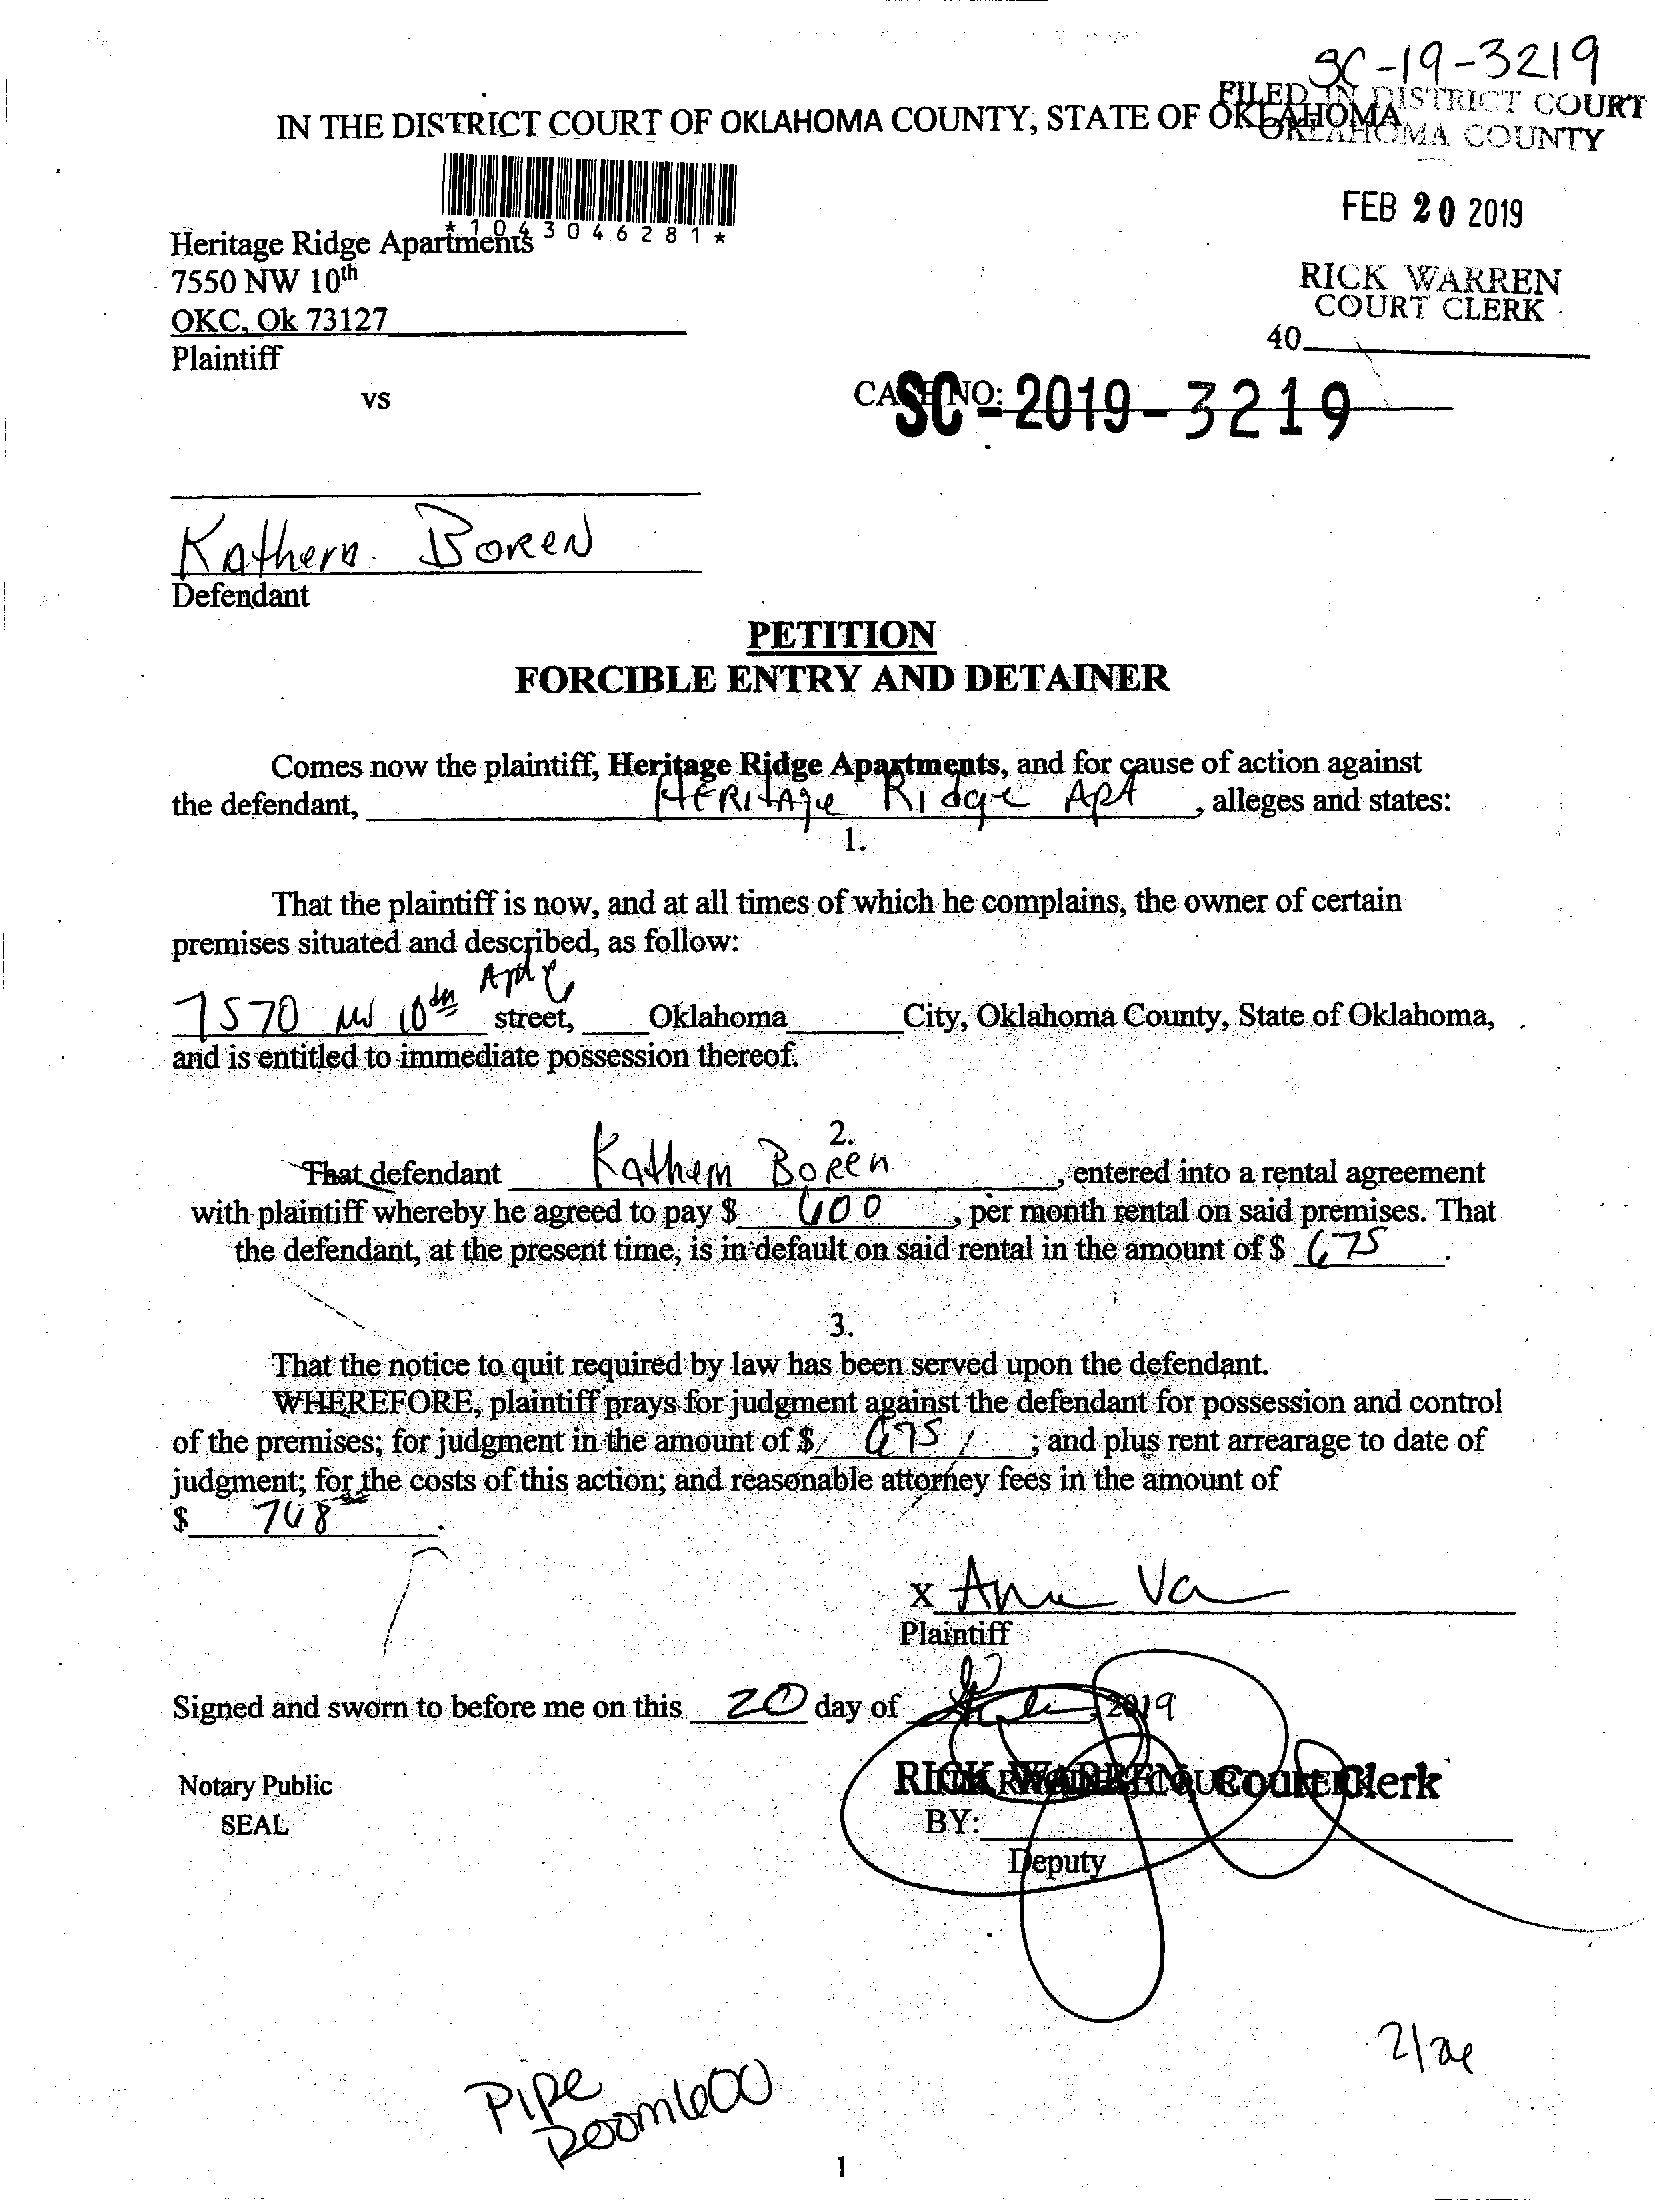 SC-19-3219
FILED IN DISTRICT COURT
OKLAHOMA COUNTY
IN THE DISTRICT COURT OF OKLAHOMA COUNTY, STATE OF OKLAHOMA
FEB 20 2019
*1043046281*
Heritage Ridge Apartments
7550 NW 10th
OKC, Ok 73127
Plaintiff
RICK WARREN
COURT CLERK
40
vs
CASE NO:
SC-2019-3219
Kathern Boren
Defendant
PETITION
FORCIBLE ENTRY AND DETAINER
Comes now the plaintiff, Heritage Ridge Apartments, and for cause of action against
the defendant, Heritage Ridge Apt, alleges and states:
1.
That the plaintiff is now, and at all times of which he complains, the owner of certain
premises situated and described, as follow:
7570 NW 10th Apt street, Oklahoma City, Oklahoma County, State of Oklahoma,
and is entitled to immediate possession thereof.
2.
That defendant Kathern Boren, entered into a rental agreement
with plaintiff whereby he agreed to pay $ 600, per month rental on said premises. That
the defendant, at the present time, is in default on said rental in the amount of $ 675.
3.
That the notice to quit required by law has been served upon the defendant.
WHEREFORE, plaintiff prays for judgment against the defendant for possession and control
of the premises; for judgment in the amount of $ 675; and plus rent arrearage to date of
judgment; for the costs of this action; and reasonable attorney fees in the amount of
$ 768.
x
Plaintiff
Signed and sworn to before me on this 20 day of , 2019
RICK WARREN Court Clerk
Notary Public
SEAL
BY:
Deputy
Pipe
Room 600
1